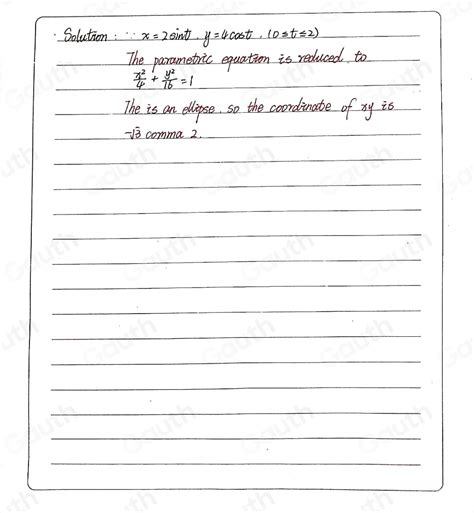 Solution: ∵ x=2sint, y=4cost, (0≤t≤2)
The parametric equation is reduced to
x²/4 + y²/16 = 1
The is an ellipse, so the coordinate of xy is
-√3 comma 2.
Gauth